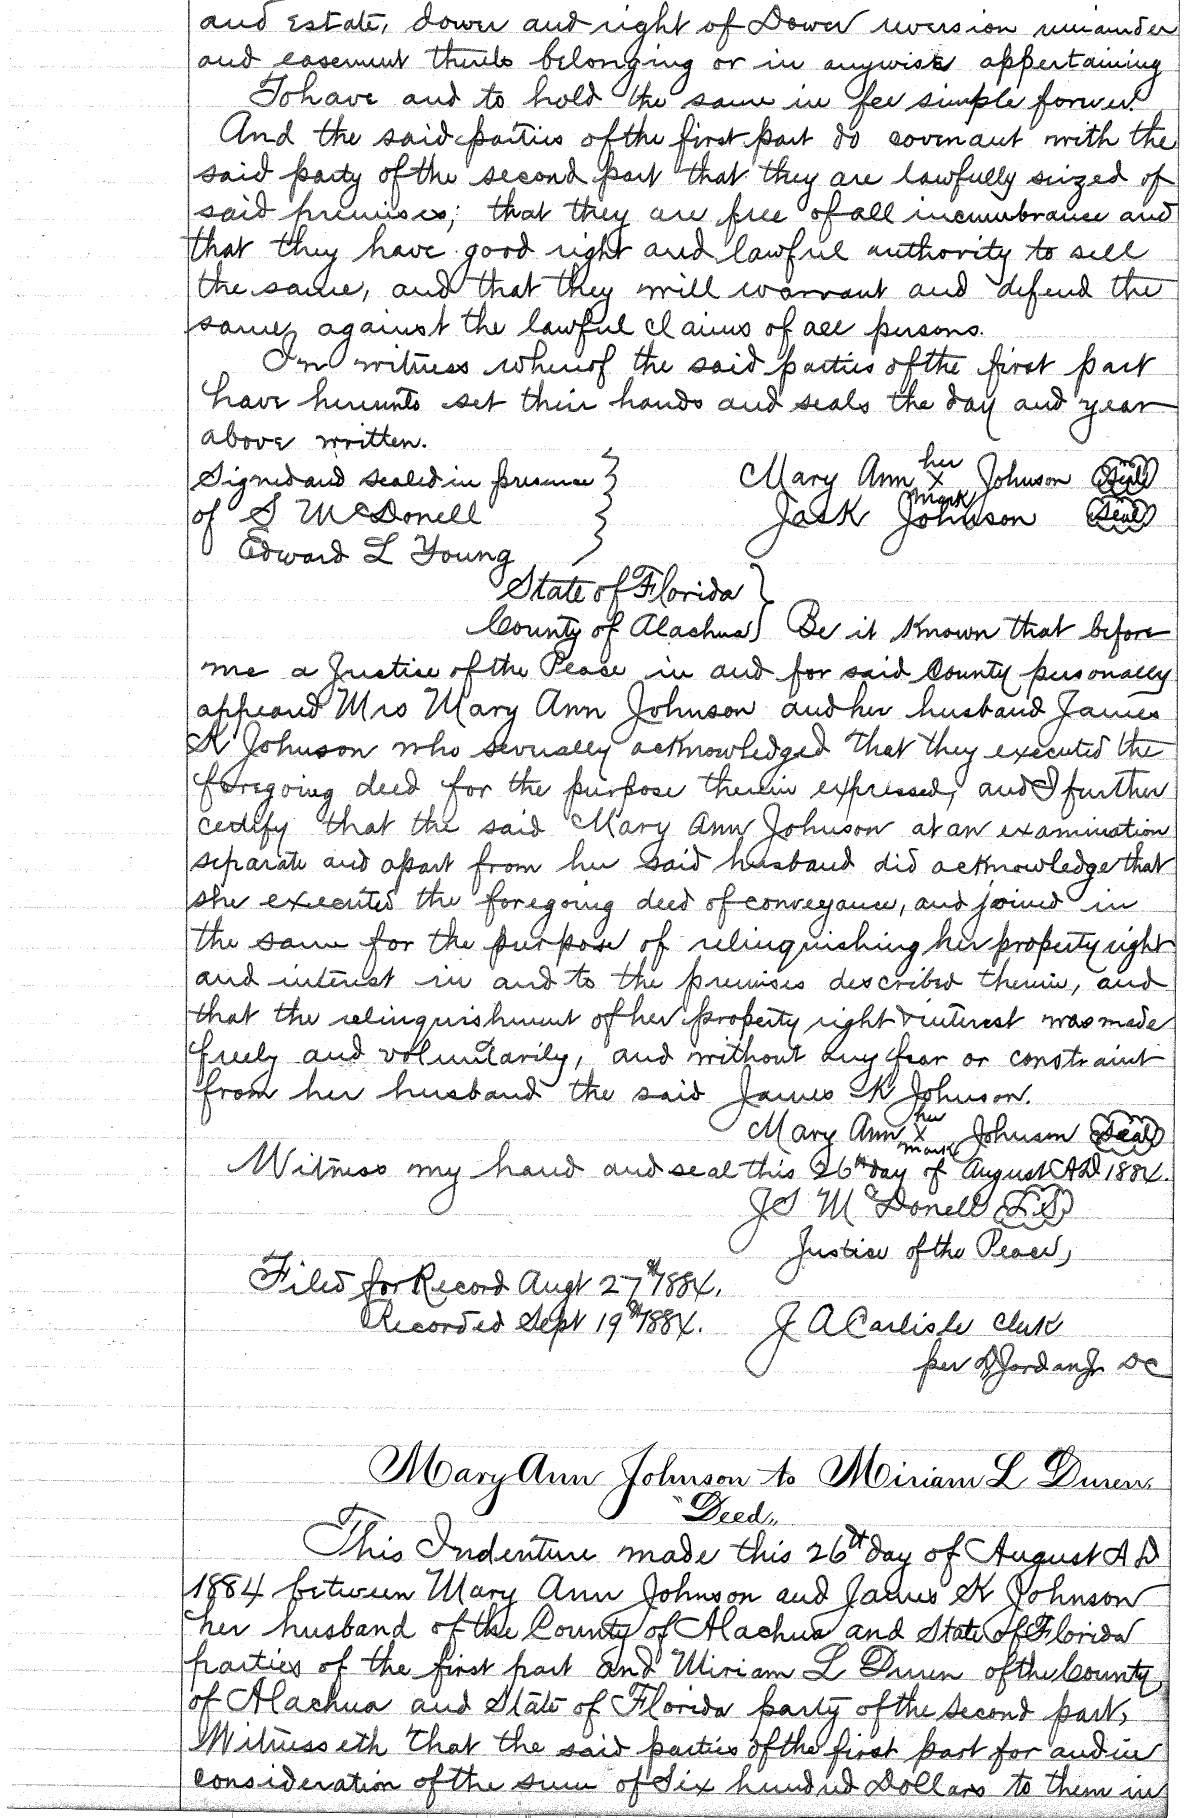 and Estate, dower and right of Dower reversion remainder
and easement thereto belonging or in anywise appertaining
To have and to hold the same in fee simple forever.
And the said parties of the first part do covenant with the
said party of the second part that they are lawfully seized of
said premises; that they are free of all incumbrance and
that they have good right and lawful authority to sell
the same, and that they will warrant and defend the
same, against the lawful claims of all persons.
In witness whereof the said parties of the first part
have hereunto set their hands and seals the day and year
above written.
Signed and sealed in presence } Mary Ann her x mark Johnson Seal
of S McDonell } JasK Johnson Seal
Edward L Young
State of Florida }
County of Alachua } Be it Known that before
me a Justice of the Peace in and for said County personally
appeared Mrs Mary Ann Johnson and her husband James
K Johnson who severally acknowledged that they executed the
foregoing deed for the purpose therein expressed, and I further
certify that the said Mary Ann Johnson at an examination
separate and apart from her said husband did acknowledge that
she executed the foregoing deed of conveyance, and joined in
the same for the purpose of relinquishing her property right
and interest in and to the premises described therein, and
that the relinquishment of her property right & interest was made
freely and voluntarily, and without any fear or constraint
from her husband the said James K Johnson.
Mary Ann her x mark Johnson Seal
Witness my hand and seal this 26th day of August AD 1884.
JS McDonell L S
Justice of the Peace,
Filed for Record Augt 27th 1884.
Recorded Sept 19th 1884. J A Carlisle Clerk
per Jordan Jr DC
Mary Ann Johnson to Miriam L Duren.
"Deed"
This Indenture made this 26th day of August A D
1884 between Mary Ann Johnson and James K Johnson
her husband of the County of Alachua and State of Florida
parties of the first part and Miriam L Duren of the County
of Alachua and State of Florida party of the second part,
Witnesseth That the said parties of the first part for and in
consideration of the sum of Six hundred Dollars to them in